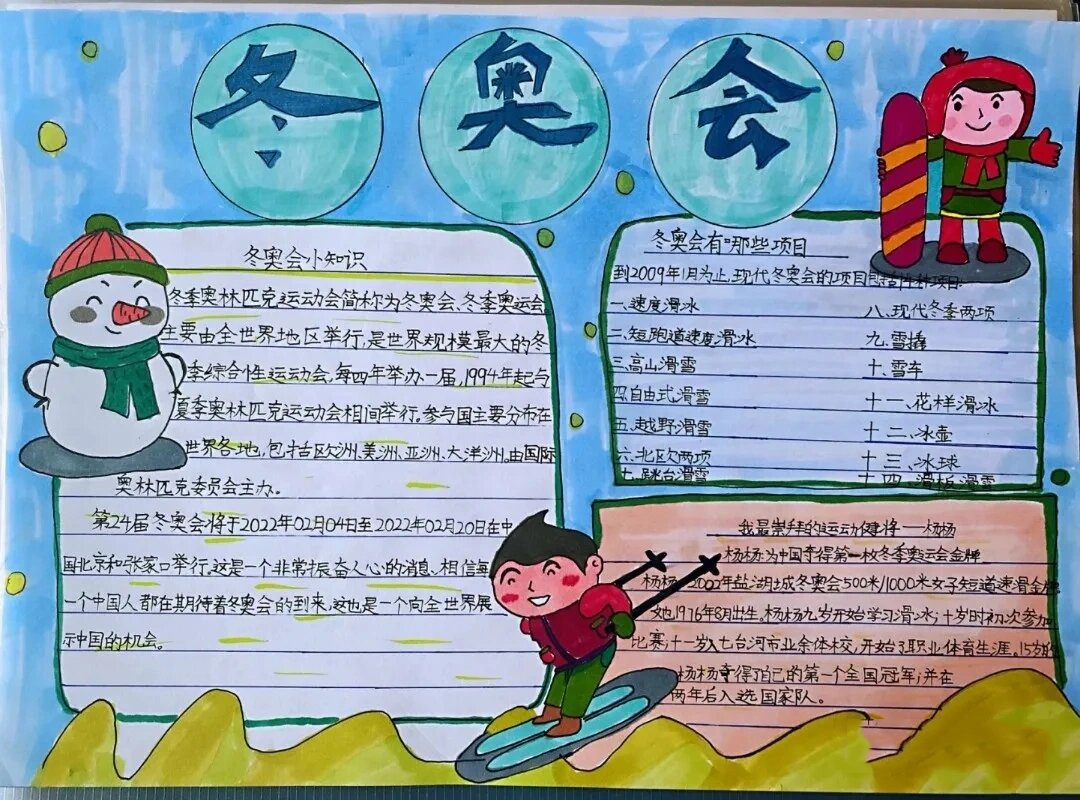 冬奥会
冬奥会小知识
冬季奥林匹克运动会简称为冬奥会、冬季奥运会
主要由全世界地区举行,是世界规模最大的冬
季综合性运动会,每四年举办一届,1994年起与
夏季奥林匹克运动会相间举行。参与国主要分布在
世界各地,包括欧洲、美洲、亚洲、大洋洲。由国际
奥林匹克委员会主办。
第24届冬奥会将于2022年02月04日至2022年02月20日在中
国北京和张家口举行。这是一个非常振奋人心的消息、相信每
一个中国人都在期待着冬奥会的到来,这也是一个向全世界展
示中国的机会。
冬奥会有那些项目
到2009年1月为止,现代冬奥会的项目包括种项目:
一、速度滑冰
二、短跑道速度滑冰
三、高山滑雪
四、自由式滑雪
五、越野滑雪
六、北欧两项
七、跳台滑雪
八、现代冬季两项
九、雪撬
十、雪车
十一、花样滑冰
十二、冰壶
十三、冰球
十四、滑板滑雪
我最崇拜的运动健将——杨杨
杨杨为中国拿得第一枚冬季奥运会金牌
杨杨,2002年盐湖城冬奥会500米/1000米女子短道速滑金牌
她1976年8月出生。杨杨九岁开始学习滑冰;十岁时初次参加
比赛;十一岁入七台河市业余体校,开始了职业体育生涯。15岁的
杨杨拿得了自己的第一个全国冠军;并在
两年后入选国家队。